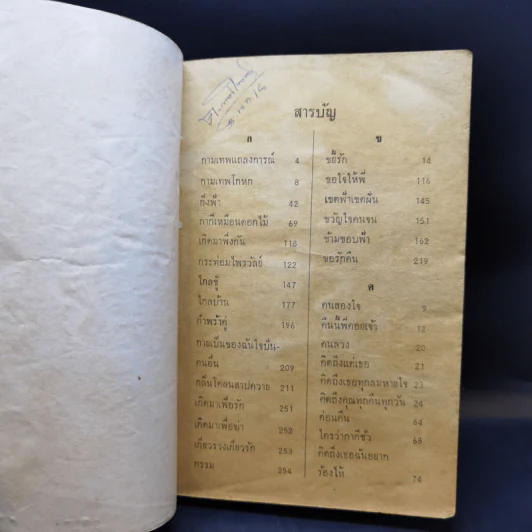 สารบัญ
ก
กามเทพแถลงการณ์ 4
กามเทพโกหก 8
กิ่งฟ้า 42
กากีเหมือนดอกไม้ 69
เกิดมาพึ่งกัน 118
กระท่อมไพรวัลย์ 122
ไกลชู้ 147
ไกลบ้าน 177
กำพร้าคู่ 196
กายเป็นของฉันใจเป็น-
คนอื่น 209
กลิ่นโคลนสาปควาย 211
เกิดมาเพื่อรัก 251
เกิดมาเพื่อฆ่า 252
เกี่ยวรวงเกี่ยวรัก 253
กรรม 254
ข
ขยี้รัก 14
ขอใจให้พี่ 116
เขตฟ้าเขตฝัน 145
ขวัญใจคนจน 151
ข้ามขอบฟ้า 162
ขอรักคืน 219
ค
คนสองใจ 9
คืนนี้พี่คอยเจ้า 12
คนลวง 20
คิดถึงแต่เธอ 21
คิดถึงเธอทุกลมหายใจ 23
คิดถึงคุณทุกคืนทุกวัน 24
ค่อนคืน 64
ใครว่ากากีชั่ว 68
คิดถึงเธอฉันอยาก
ร้องไห้ 74